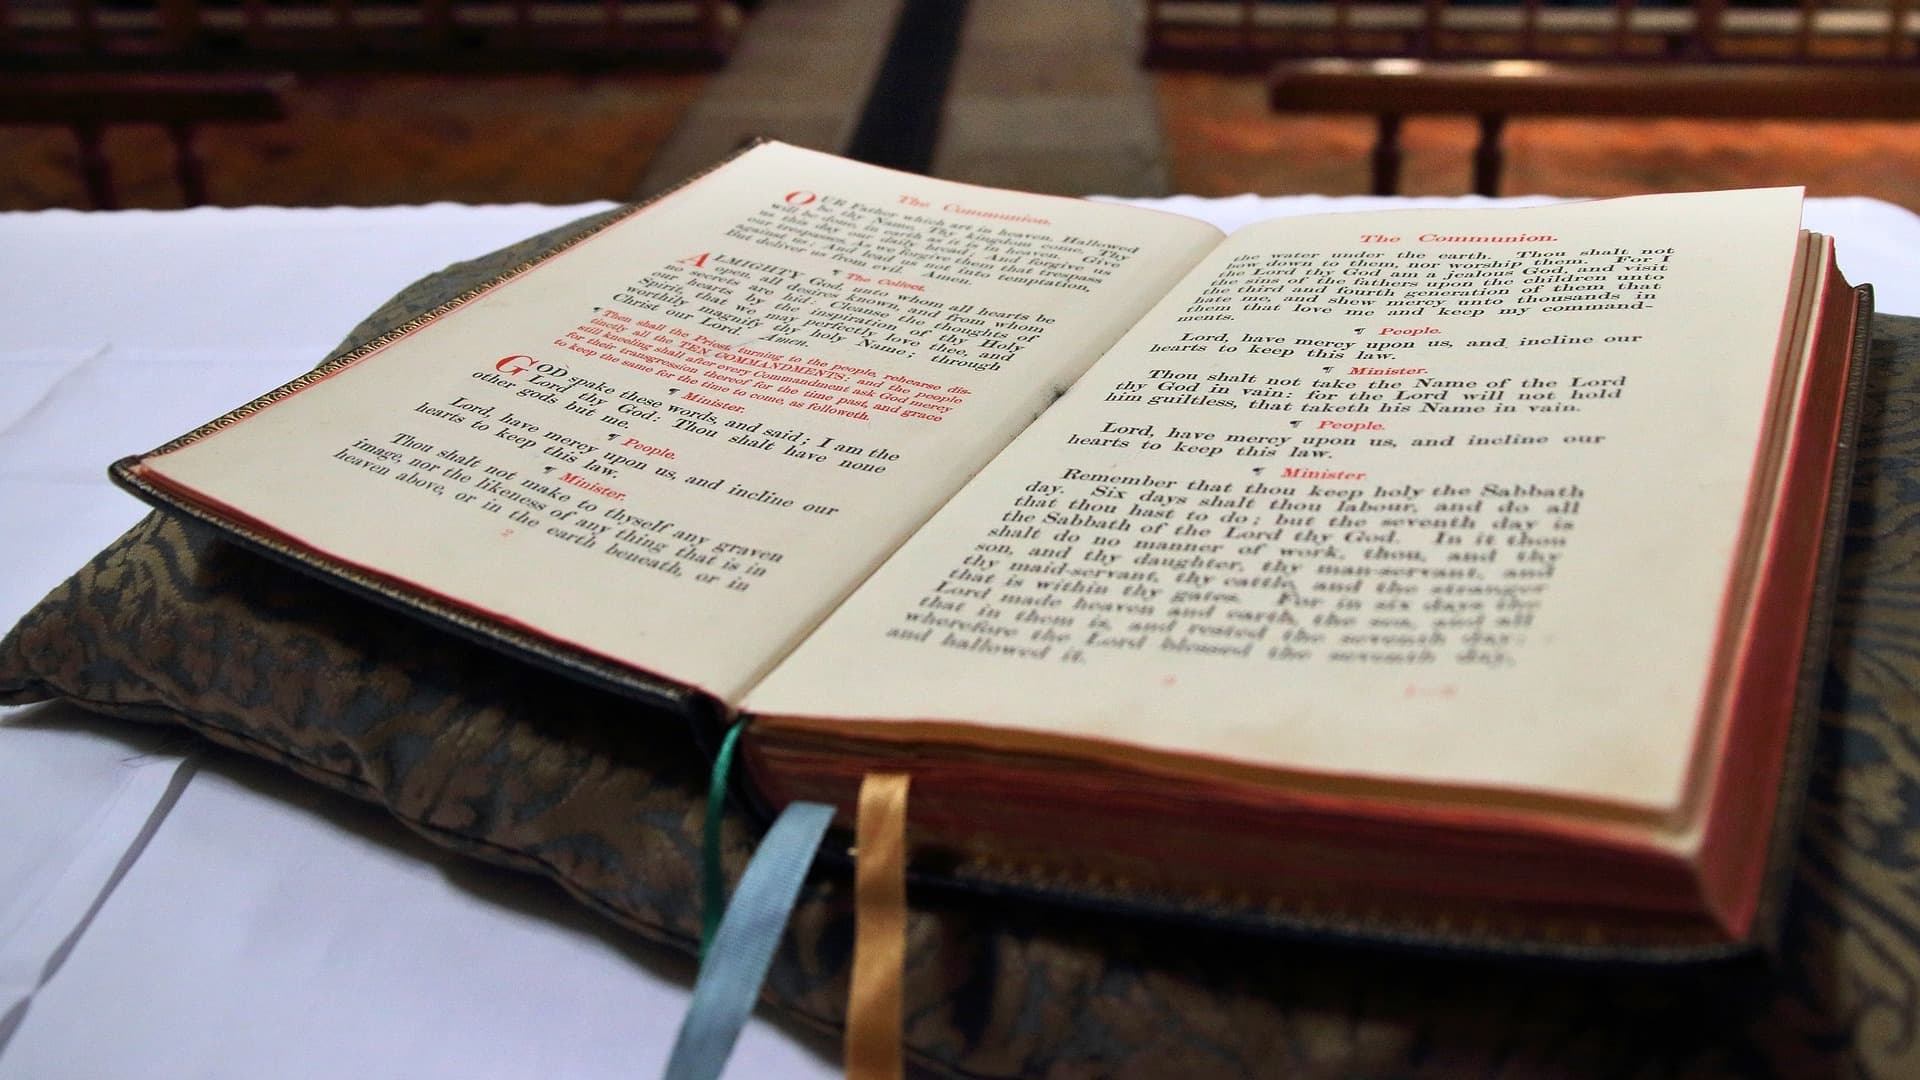 The Communion.
OUR Father which art in heaven, Hallowed
be thy Name, Thy kingdom come, Thy
will be done, in earth as it is in heaven. Give
us this day our daily bread; And forgive us
our trespasses, As we forgive them that trespass
against us; And lead us not into temptation,
But deliver us from evil. Amen.
¶ The Collect.
ALMIGHTY God, unto whom all hearts be
open, all desires known, and from whom
no secrets are hid: Cleanse the thoughts of
our hearts by the inspiration of thy Holy
Spirit, that we may perfectly love thee, and
worthily magnify thy holy Name; through
Christ our Lord. Amen.
¶ Then shall the Priest, turning to the people, rehearse dis-
tinctly all the TEN COMMANDMENTS; and the people
still kneeling shall after every Commandment ask God mercy
for their transgression thereof for the time past, and grace
to keep the same for the time to come, as followeth.
¶ Minister.
GOD spake these words, and said; I am the
Lord thy God: Thou shalt have none
other gods but me.
¶ People.
Lord, have mercy upon us, and incline our
hearts to keep this law.
¶ Minister.
Thou shalt not make to thyself any graven
image, nor the likeness of any thing that is in
heaven above, or in the earth beneath, or in
2
The Communion.
the water under the earth. Thou shalt not
bow down to them, nor worship them. For I
the Lord thy God am a jealous God, and visit
the sins of the fathers upon the children unto
the third and fourth generation of them that
hate me, and shew mercy unto thousands in
them that love me and keep my command-
ments.
¶ People.
Lord, have mercy upon us, and incline our
hearts to keep this law.
¶ Minister.
Thou shalt not take the Name of the Lord
thy God in vain: for the Lord will not hold
him guiltless, that taketh his Name in vain.
¶ People.
Lord, have mercy upon us, and incline our
hearts to keep this law.
¶ Minister
Remember that thou keep holy the Sabbath
day. Six days shalt thou labour, and do all
that thou hast to do; but the seventh day is
the Sabbath of the Lord thy God. In it thou
shalt do no manner of work, thou, and thy
son, and thy daughter, thy man-servant, and
thy maid-servant, thy cattle, and the stranger
that is within thy gates. For in six days the
Lord made heaven and earth, the sea, and all
that in them is, and rested the seventh day:
wherefore the Lord blessed the seventh day,
and hallowed it.